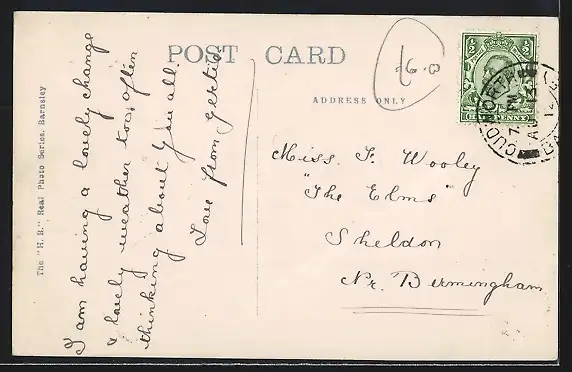 POST CARD
ADDRESS ONLY
The "H. B." Real Photo Series, Barnsley
I am having a lovely change
& lovely weather too, often
thinking about you all.
Love from Gertie
Miss. F. Wooley
"The Elms"
Sheldon
Nr. Birmingham
CUDWORTH